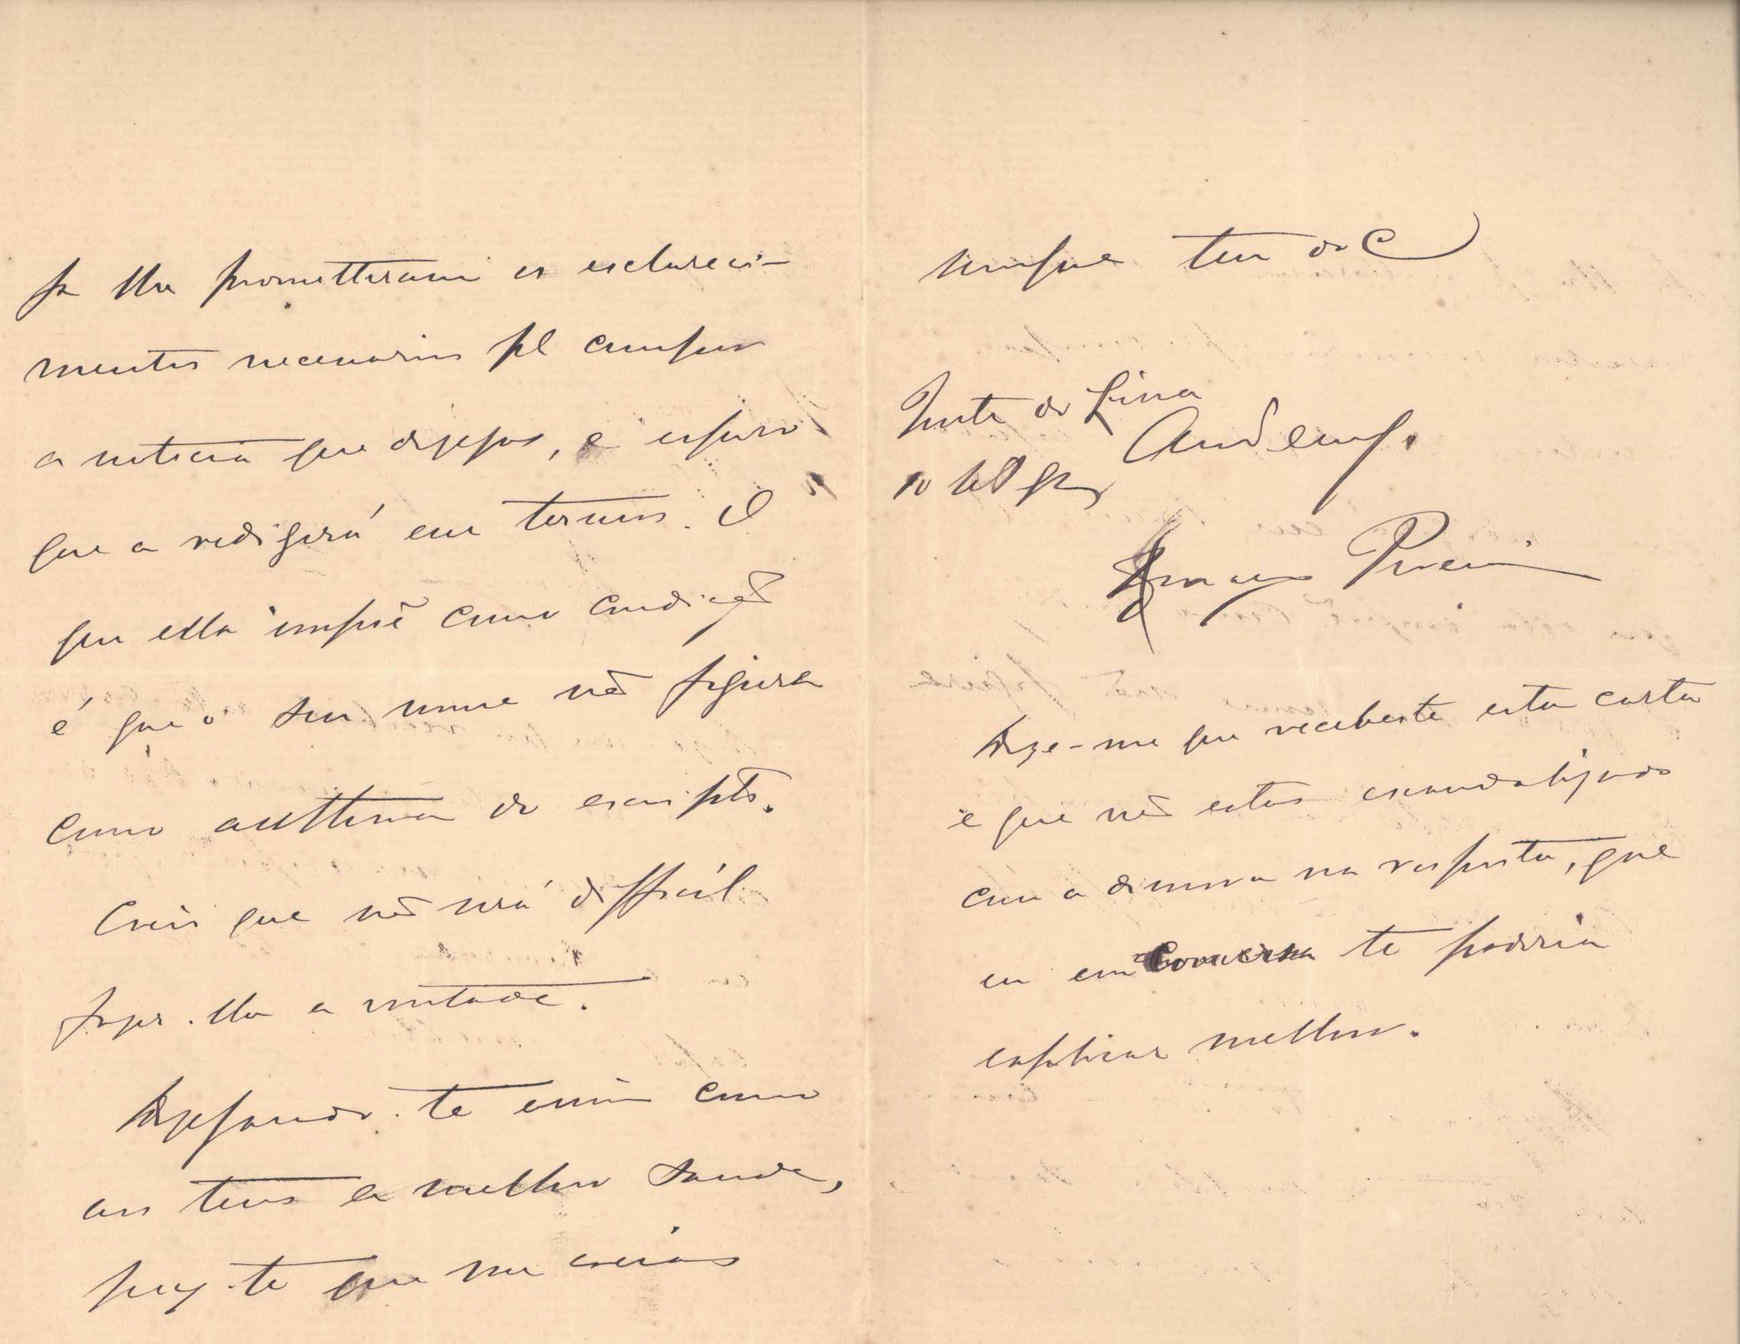 Ja lhe prometteram os esclareci-
mentos necessarios pª compor
a noticia que desejas, e espero
que a redigirá em termos. O
que ella impõe como condição
é que o seu nome não figura
como authora do escripto.
Creio que não será difficil
fazer-lhe a vontade.
Desejando-te assim como
aos teus a melhor saude,
peço-te que me creias
sempre teu do C
Ponte do Lima
10
Am.º e
Pereira
Dize-me que recebeste esta carta
e que não estás escandalizado
com a demora na resposta, que
eu em Caminha te poderia
explicar melhor.